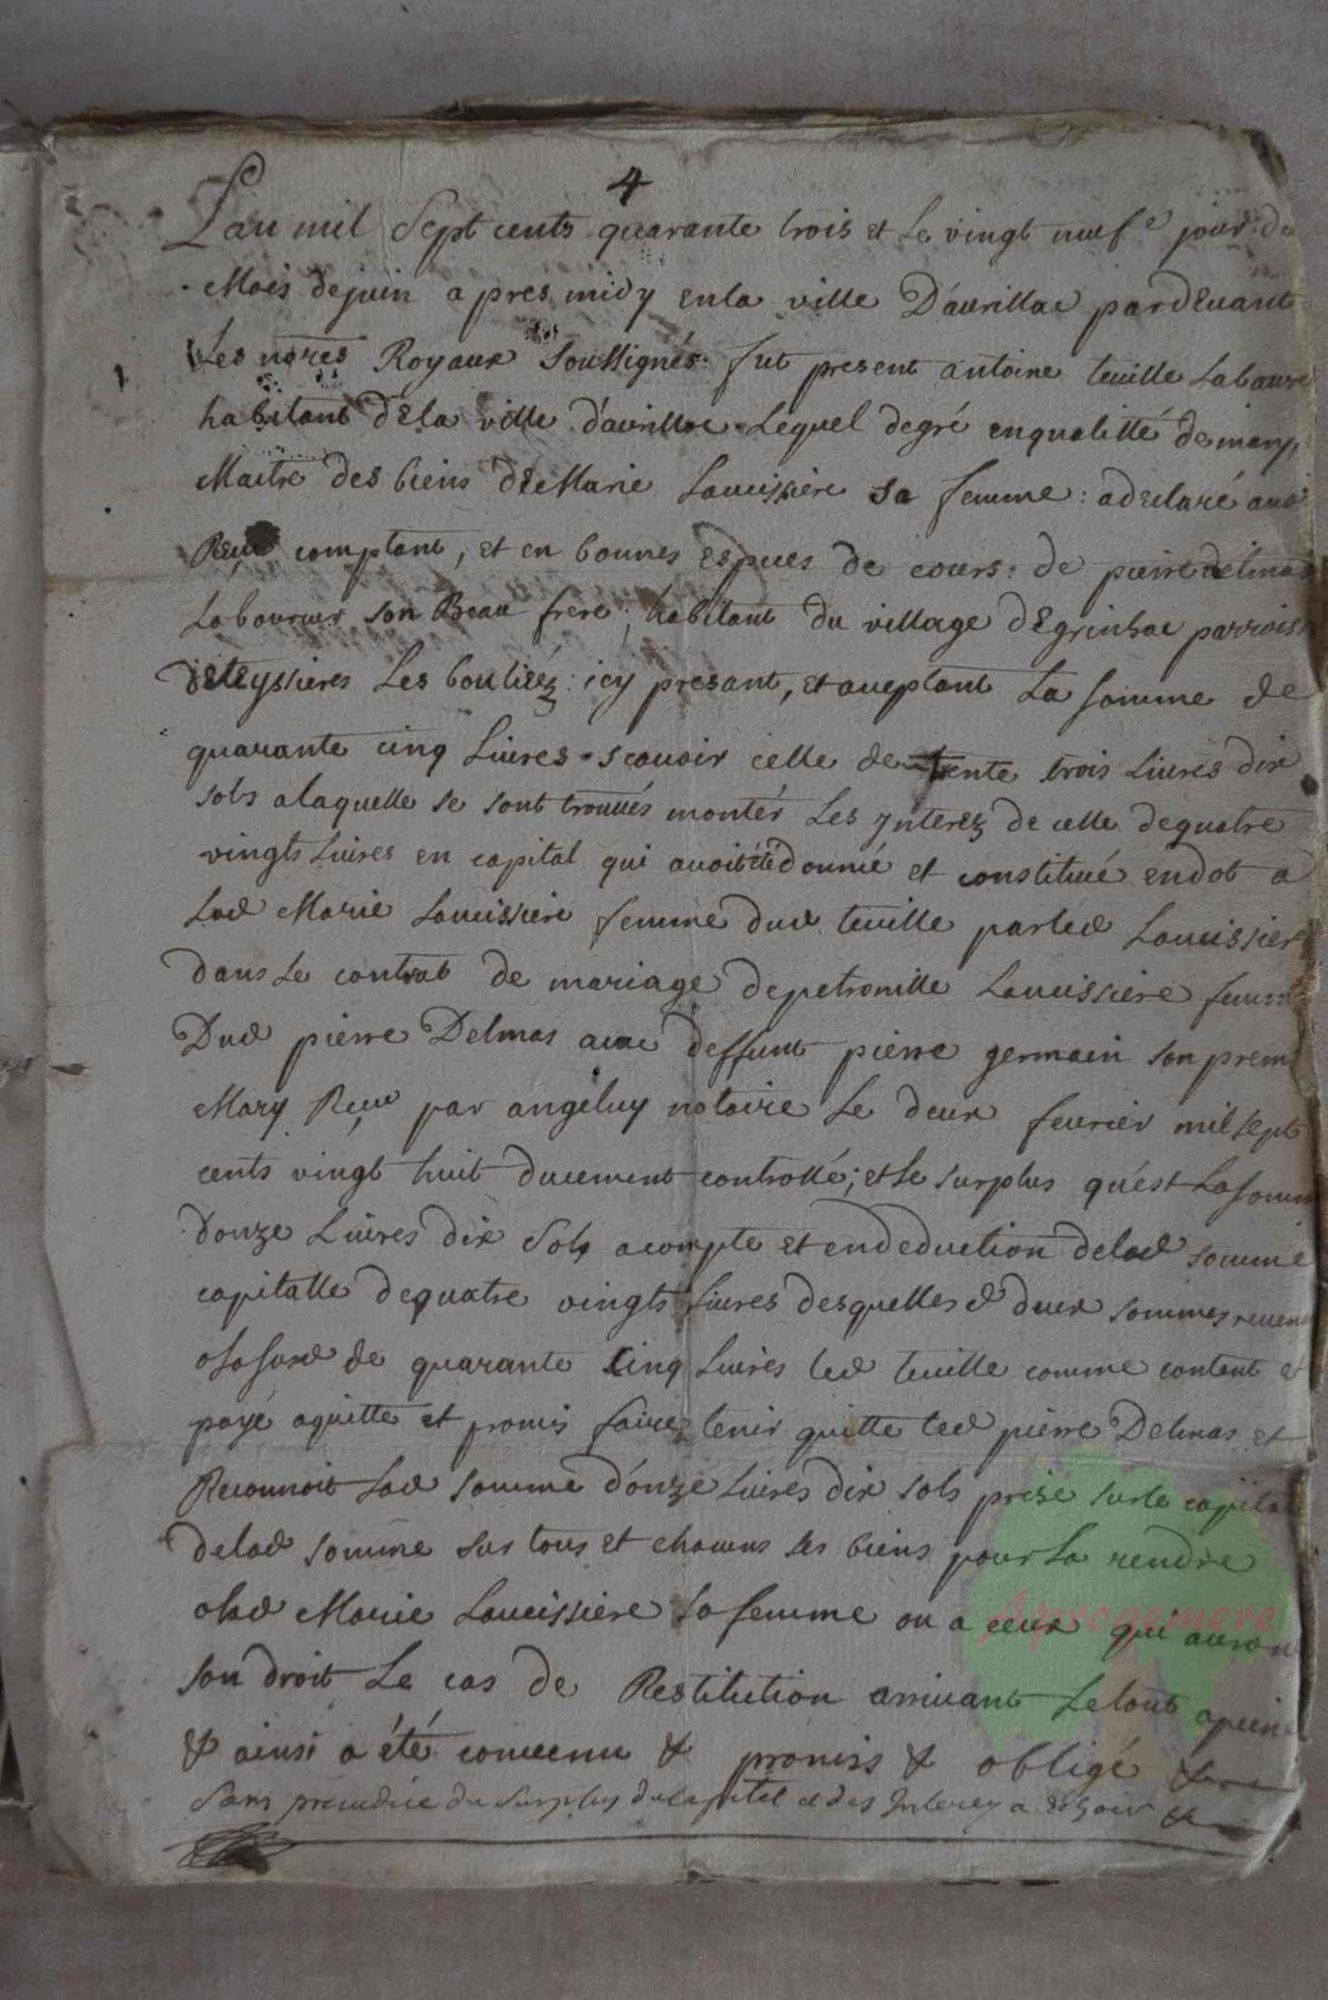 4
L'an mil sept cents quarante trois et le vingt neuf e jour du
Mois de juin apres midy en la ville D'aurillac pardevant
Les nores Royaux soussignés fut present antoine teuille
habitant de la ville d'aurillac Lequel de gré en qualitté de mary,
Maitre des biens de Marie Laveissiere sa femme : a declaré avoi
Reçu comptant, et en bonnes especes de cours : de pierre delmas
Laboureur son Beau frere, habitant du village de grinhac parrois
de teyssieres Les bouliéz : icy presant, et aceptant La somme de
quarante cinq Livres scavoir celle de trente trois Livres dix
sols a laquelle se sont trouvés montér Les ynterez de celle de quatre
vingts Livres en capital qui avoit été donné et constitué en dot a
Lad Marie Laveissiere femme dud teuille par led Laveissiere
dans le contrat de mariage de petronille Laveissiere femme
Dud pierre Delmas avec deffunt pierre germain son prem
Mary Reçu par angelvy notaire Le deux fevrier mil sept
cents vingt huit duement controllé ; et le surplus qu'est La som
d'onze Livres dix sols a compte et en deduction de lad somme
capitalle de quatre vingts Livres desquelles d deux sommes reven
a la susd de quarante cinq Livres led teuille comme content et
payé a quitte et promis faire tenir quitte led pierre Delmas et
Reconnoit Lad somme d'onze Livres dix sols prise sur le capital
de lad somme sur tous et chacuns ses biens pour La rendre
a lad Marie Laveissiere sa femme ou a ceux qui auron
son droit Le cas de Restitution arrivant Le tout a peine
& ainsi a été convenu & promis & obligé &
Sans prejudice du surplus du capital et des Interez a &
Aprogemere